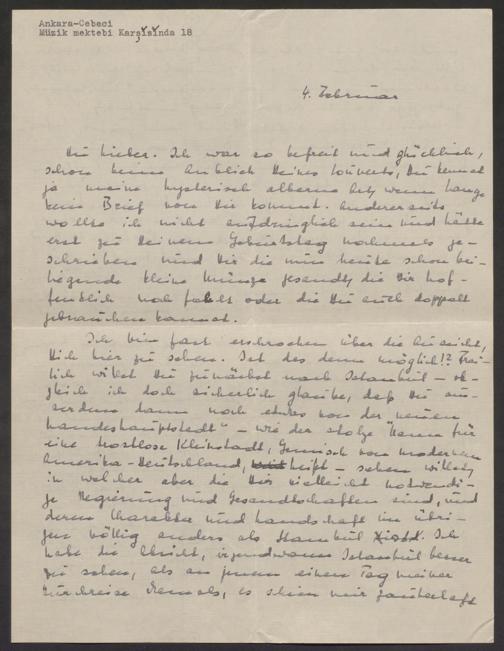 Ankara-Cebeci
Müzik mektebi Karşisinda 18
4. Februar
Du Lieber. Ich war so befreit und glücklich,
schon beim Anblick Deines Couverts, Du kennst
ja meine hysterisch alberne Art, wenn lange
kein Brief von Dir kommt. Andererseits
wollte ich nicht aufdringlich sein und hätte
erst zu Deinem Geburtstag nochmals ge-
schrieben und Dir die nun heute schon bei-
liegende kleine Münze gesandt, die Dir hof-
fentlich noch fehlt oder die Du auch doppelt
gebrauchen kannst.
Ich bin fast erschrocken über die Aussicht,
Dich hier zu sehen. Ist das denn möglich!? Frei-
lich willst Du zunächst nach Istanbul – ob-
gleich ich doch sicherlich glaube, daß Du aus-
serdem dann noch etwas von der neuen
"Landeshauptstadt" – wie der stolze Name für
eine trostlose Kleinstadt, Gemisch von modernem
Amerika-Deutschland, heißt – sehen willst,
in welcher aber die Dir vielleicht notwendi-
ge Regierung und Gesandtschaften sind, und
deren Charakter und Landschaft im übri-
gen völlig anders als Stambul. Ich
habe die Absicht, irgendwann Istanbul besser
zu sehen, als an jenem einen Tag meiner
Durchreise damals, es schien mir zauberhaft